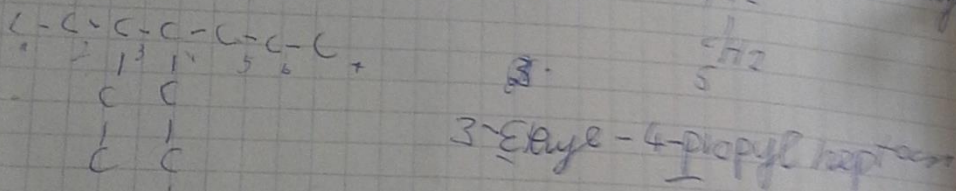 C-C-C-C-C-C-C
1 2 3 4 5 6 7
C C
C C
CH2
5
3.
3-Ethyl-4-propyl heptan